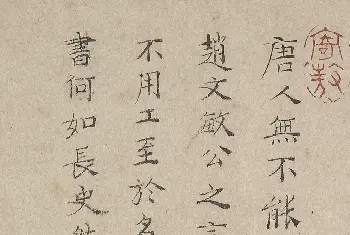 唐人無不能
趙文敏公之言
不用工至於名
書何如長史